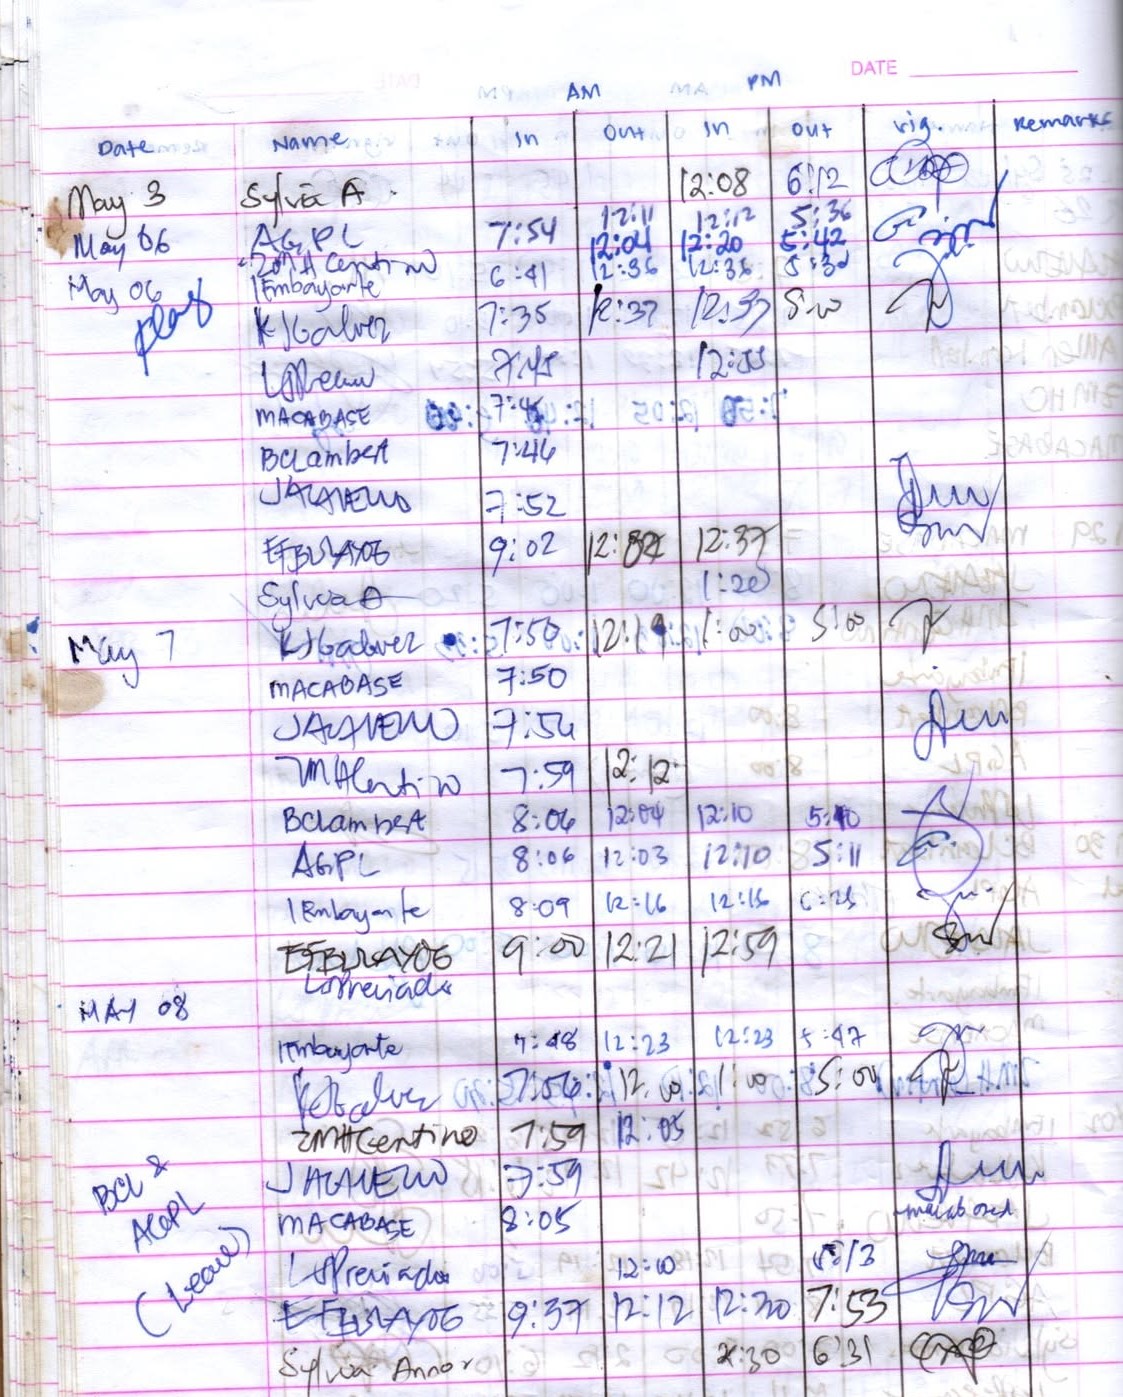 DATE
AM PM
Date Name In Out In Out Sig. Remarks
May 3 Sylvia A. 12:08 6:12
May 06 AGPL 7:54 12:11 12:12 5:36
12:04 12:20 5:42
May 06 IEmbayante 6:41 12:36 12:36
KJGalvez 7:35 12:37 12:37
7:45 12:55
MACABASE 7:45
BCLambert 7:46
JACAVERO 7:52
EFBULAYOG 9:02 12:37
Sylvia A 1:20
May 7 KJGalvez 7:50 1:00 5:00
MACABASE 7:50
JACAVERO 7:56
ZMHCentino 7:59 12:12
BCLambert 8:06 12:04 12:10 5:10
AGPL 8:06 12:03 12:10 5:11
IEmbayante 8:09 12:16 12:16 6:25
EFBULAYOG 9:00 12:21 12:59
LSPreciado
MAY 08
IEmbayante 7:48 12:23 12:23 5:47
KJGalvez 7:56 12:00 1:00 5:00
ZMHCentino 7:59 12:05
JACAVERO 7:59
MACABASE 8:05 macabase
LSPreciado 12:10 5:13
EFBULAYOG 9:37 12:12 12:30 7:53
Sylvia Annor 2:30 6:31
BCL &
AGPL
(Leave)